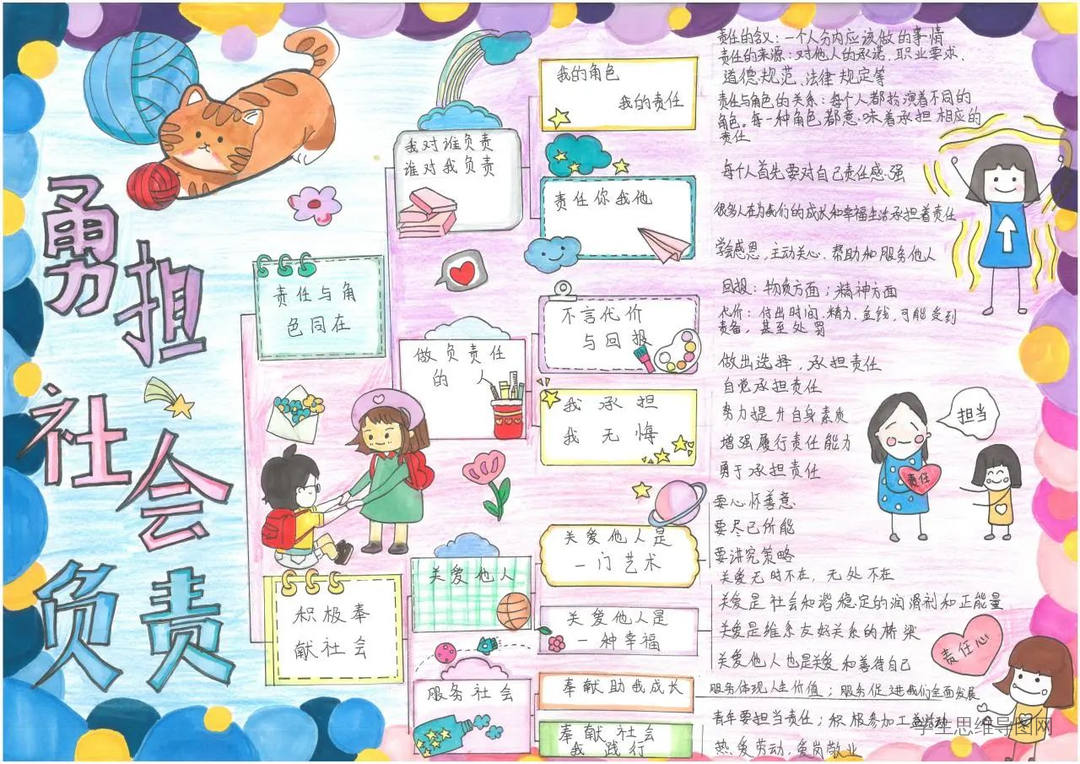 勇担
社会
负责
责任与角
色同在
积极奉
献社会
我对谁负责
谁对我负责
做负责任
的人
关爱他人
服务社会
我的角色
我的责任
责任你我他
不言代价
与回报
我承担
我无悔
关爱他人是
一门艺术
关爱他人是
一种幸福
奉献助我成长
奉献社会
我践行
责任的含义：一个人分内应该做的事情
责任的来源：对他人的承诺、职业要求、
道德规范、法律规定等
责任与角色的关系：每个人都扮演着不同的
角色。每一种角色都意味着承担相应的
责任
每个人首先要对自己责任感强
很多人在为我们的成长和幸福生活承担着责任
学会感恩，主动关心、帮助和服务他人
回报：物质方面；精神方面
代价：付出时间、精力、金钱，可能受到
责备，甚至处罚
做出选择，承担责任
自觉承担责任
努力提升自身素质
增强履行责任能力
勇于承担责任
要心怀善意
要尽己所能
要讲究策略
关爱无时不在，无处不在
关爱是社会和谐稳定的润滑剂和正能量
关爱是维系友好关系的桥梁
关爱他人也是关爱和善待自己
服务体现人生价值；服务促进我们全面发展
青年要担当责任；积服务参加工
热爱劳动，爱岗敬业
担当
责任
责任心
学生思维导图网